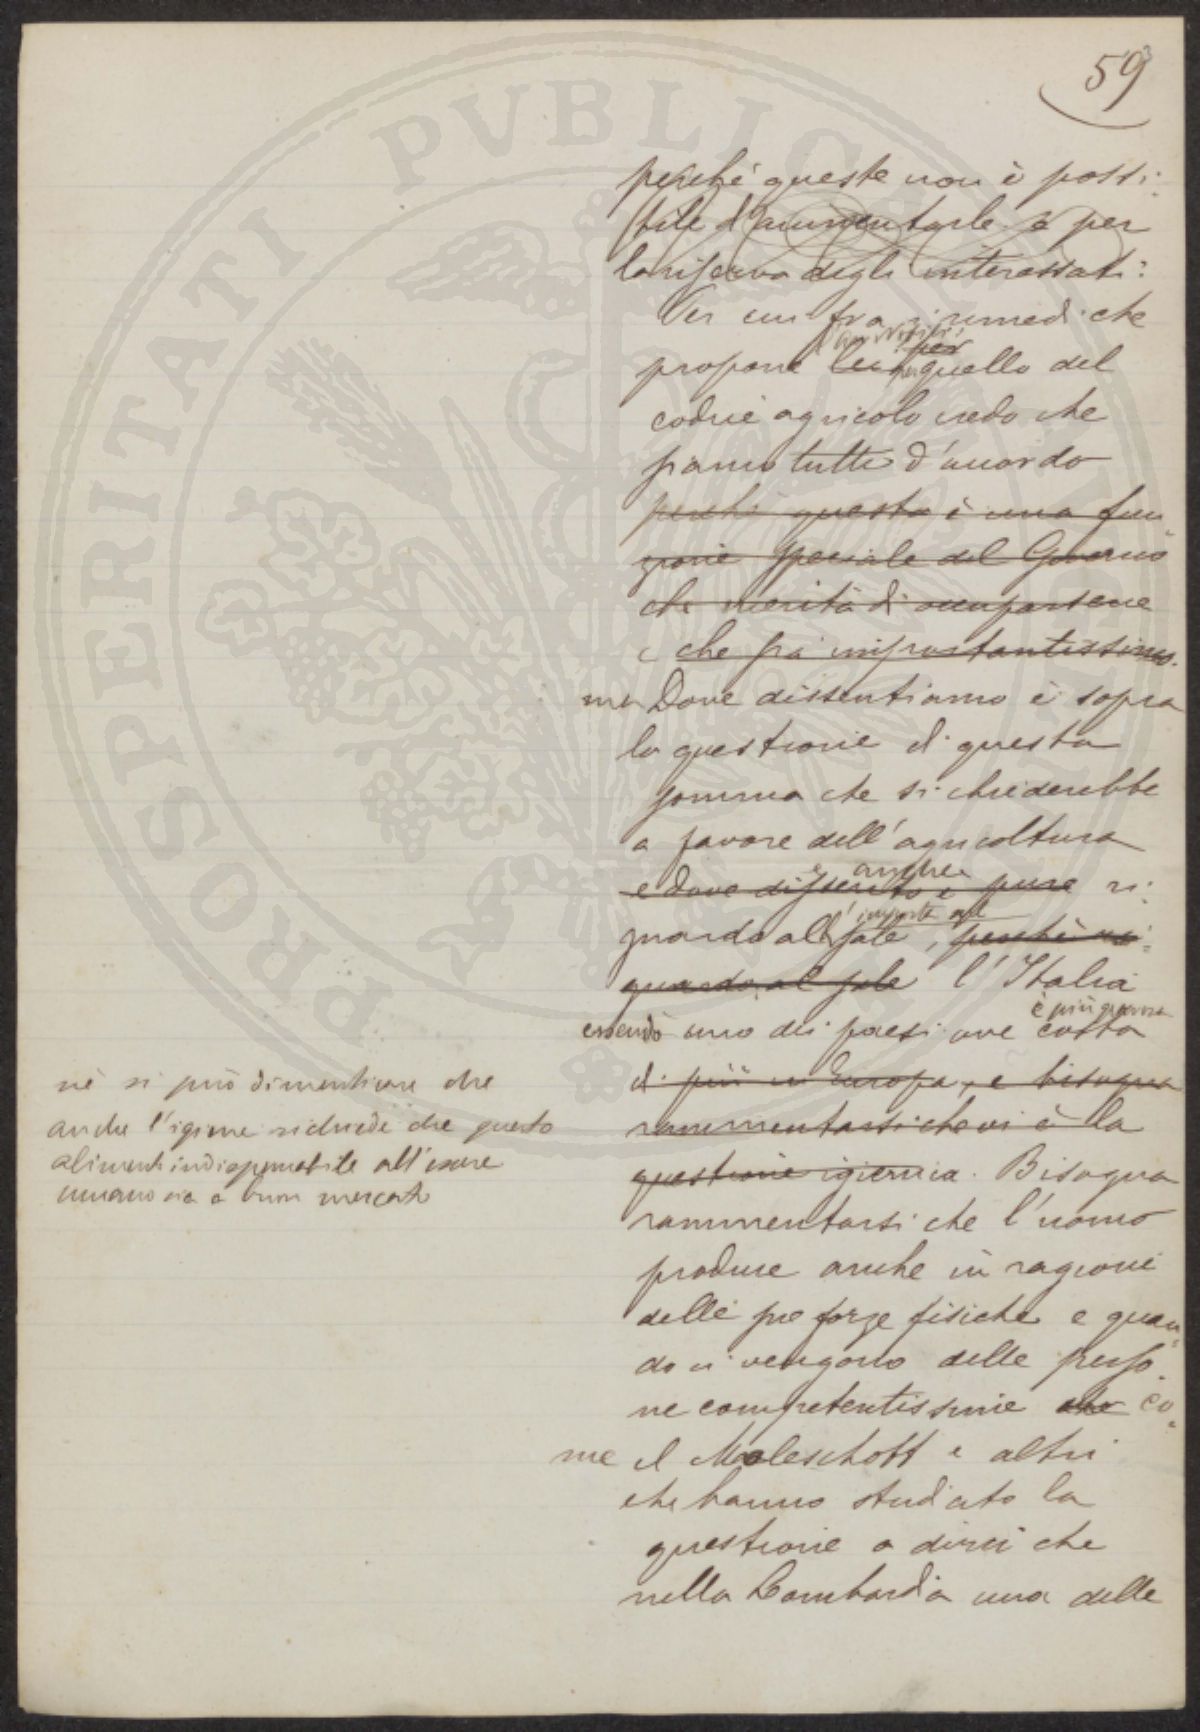 59
perchè queste non è possi-
bile d'aumentarle e per
la riserva degli interessati:
Per un fra i rimedi che
propone per quello del
codice agricolo credo che
siamo tutti d'accordo
perchè questa è una fun-
zione speciale del Governo
che merita di occuparsene
e che sia importantissimo.
ma Dove dissentiamo è sopra
la questione di questa
somma che si chiederebbe
a favore dell'agricoltura
e anche
e dove dissento è pure ri-
imposta sul
guardo all' sale, perchè ri-
guardo al sale l'Italia
è più gravosa
essendo uno dei paesi ove costa
di più in Europa, e bisogna
rammentarsi che vi è la
questione igienica. Bisogna
rammentarsi che l'uomo
produce anche in ragione
delle sue forze fisiche e quan-
do ci vengono delle perso-
ne competentissime che co-
me il Moleschott e altri
che hanno studiato la
questione a dirci che
nella Lombardia una delle
nè si può dimenticare che
anche l'igiene richiede che questo
alimento indispensabile all'essere
umano sia a buon mercato
PROSPERITATI PVBLICAE